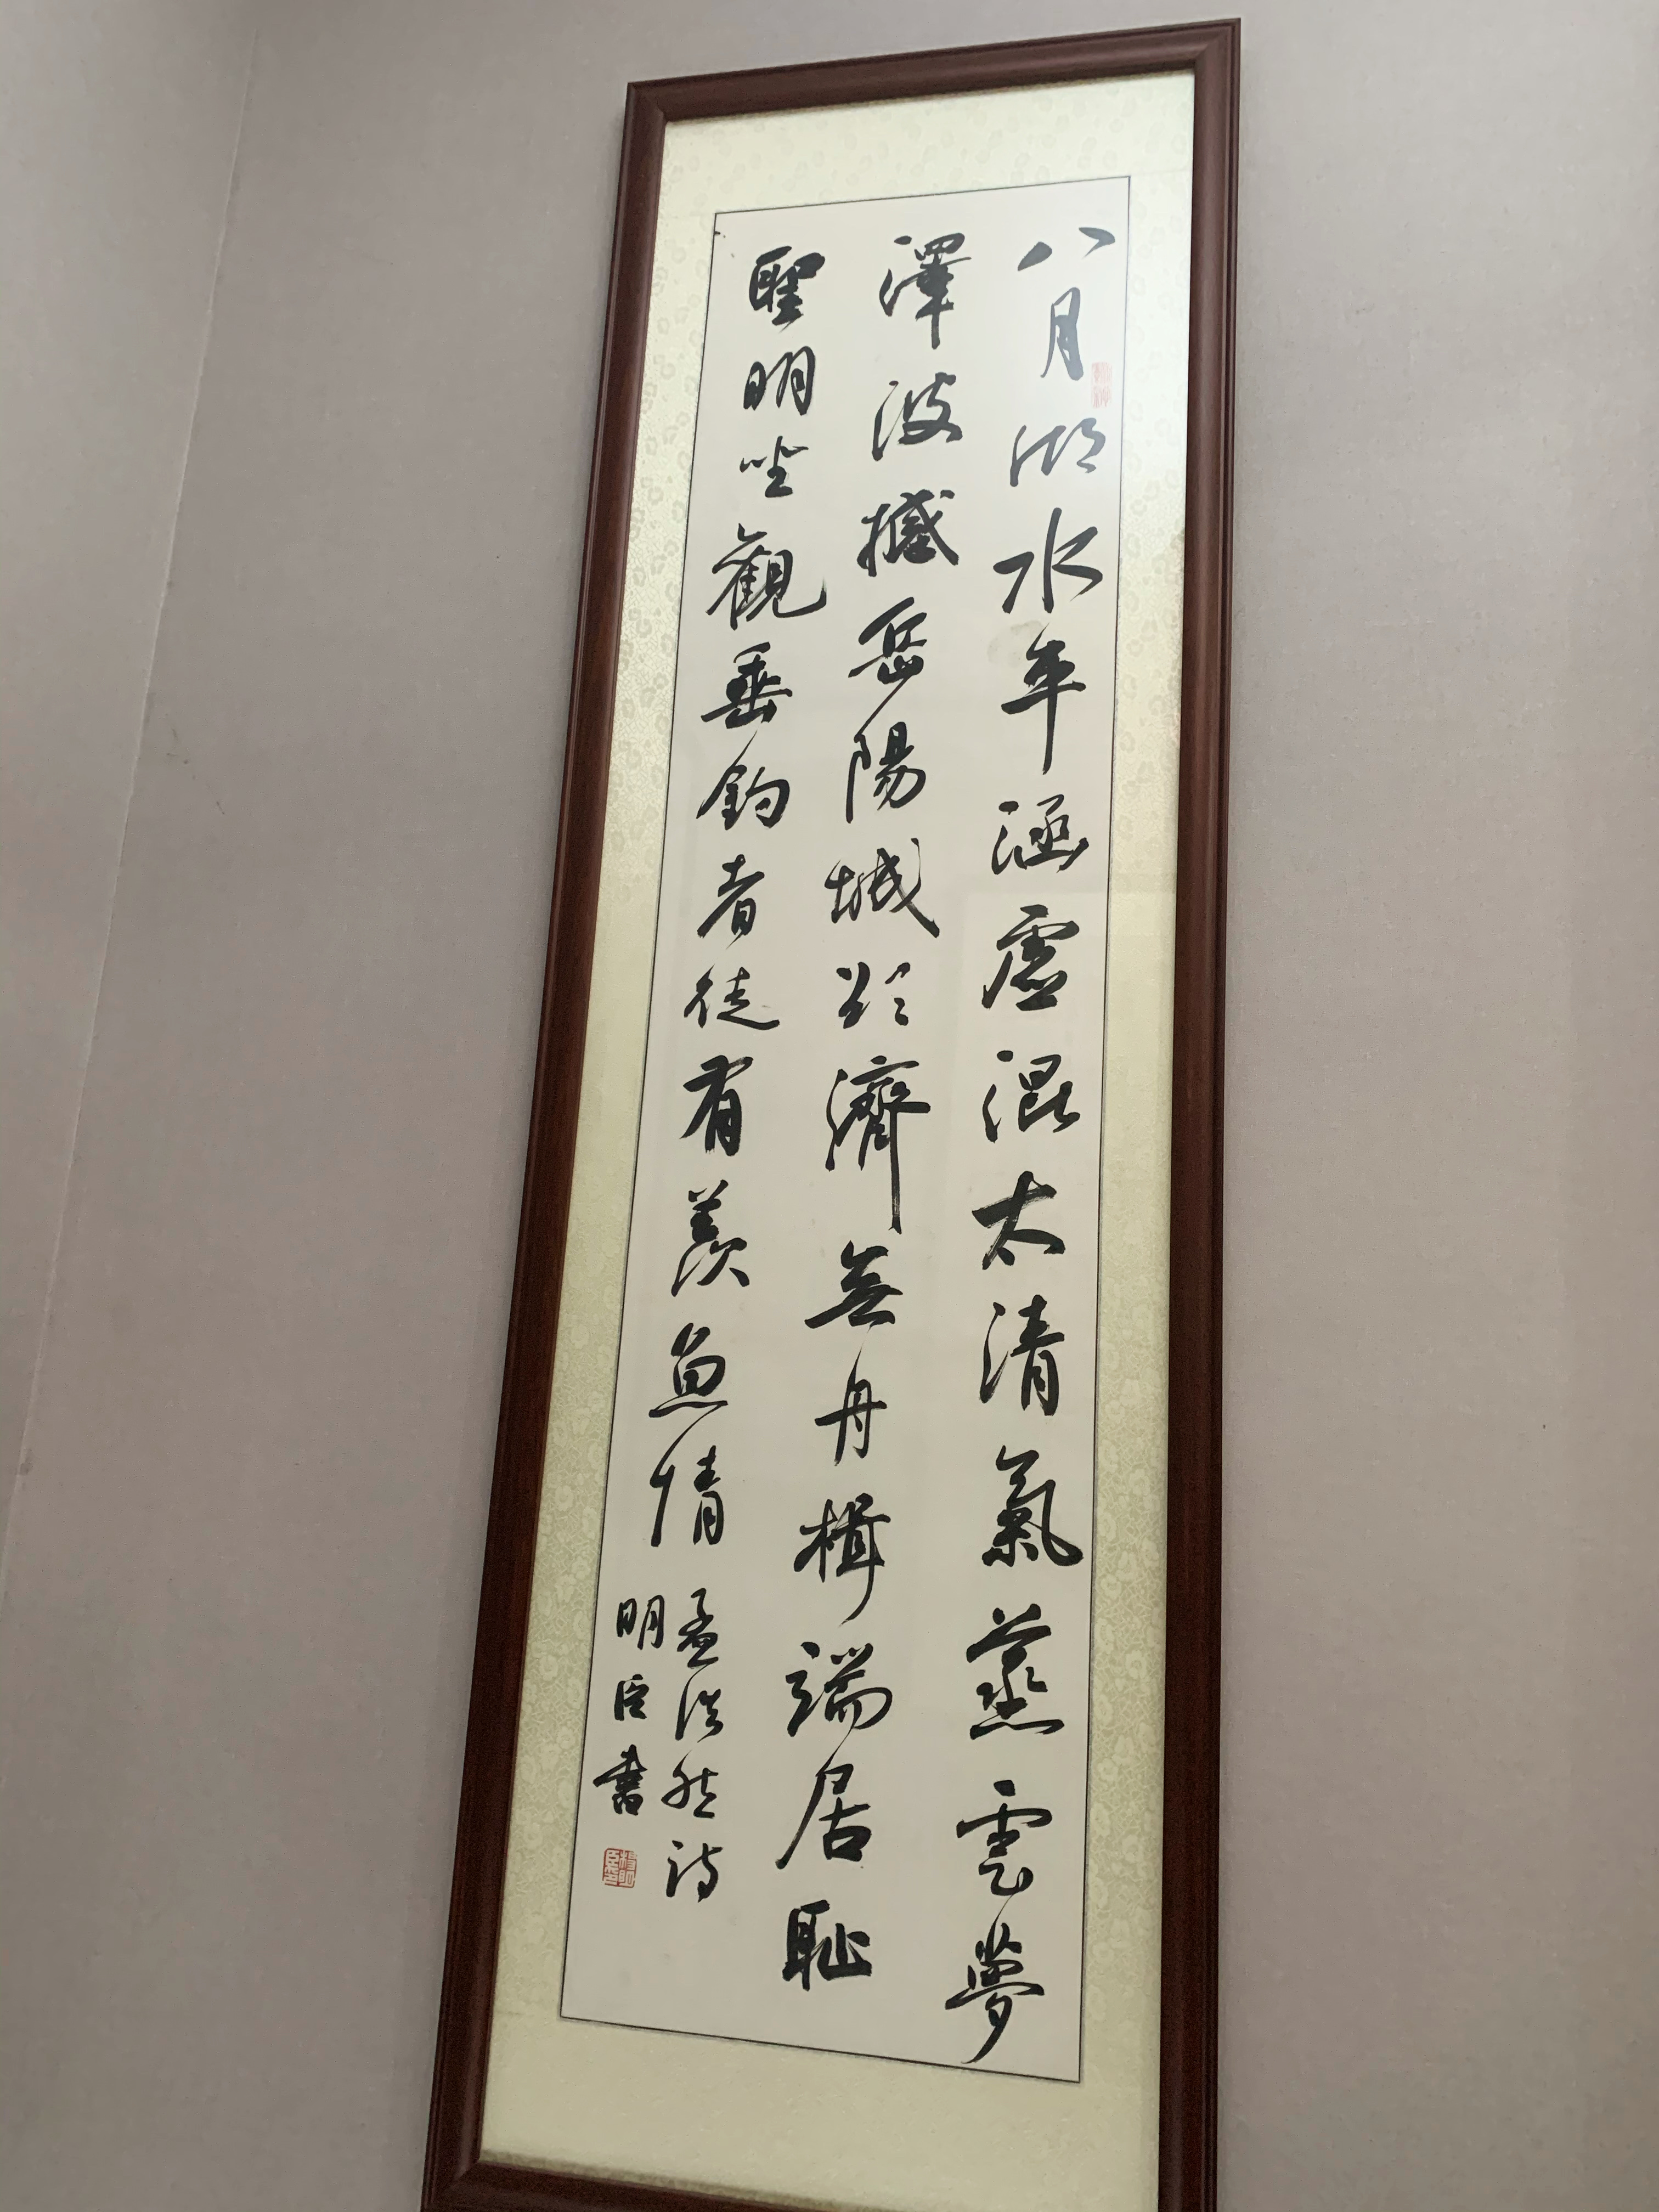 八月湖水平涵虛混太清氣蒸雲夢
澤波撼岳陽城欲濟無舟楫端居耻
聖明坐觀垂釣者徒有羨魚情
孟浩然詩
明臣書